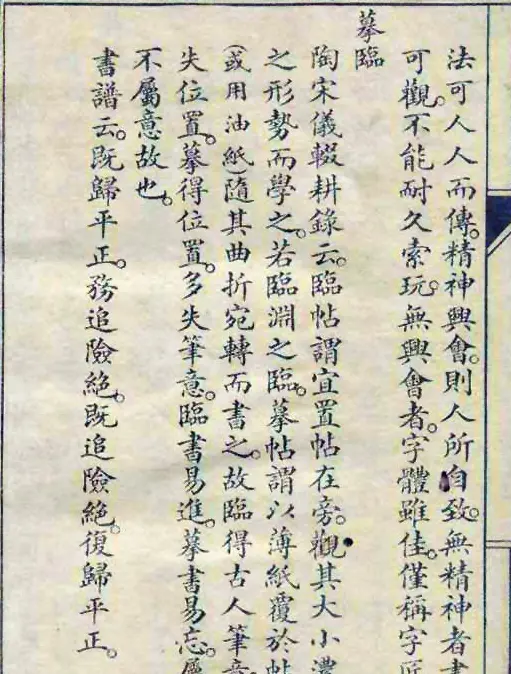 法可人人而傳。精神興會。則人所自致。無精神者書
可觀。不能耐久索玩。無興會者。字體雖佳。僅稱字匠
摹臨
陶宋儀輟耕錄云。臨帖謂宜置帖在旁。觀其大小濃
之形勢而學之。若臨淵之臨。摹帖謂以薄紙覆於帖
(或用油紙)隨其曲折宛轉而書之。故臨得古人筆意
失位置。摹得位置。多失筆意。臨書易進。摹書易忘。屬
不屬意故也。
書譜云。既歸平正。務追險絕。既追險絕。復歸平正。